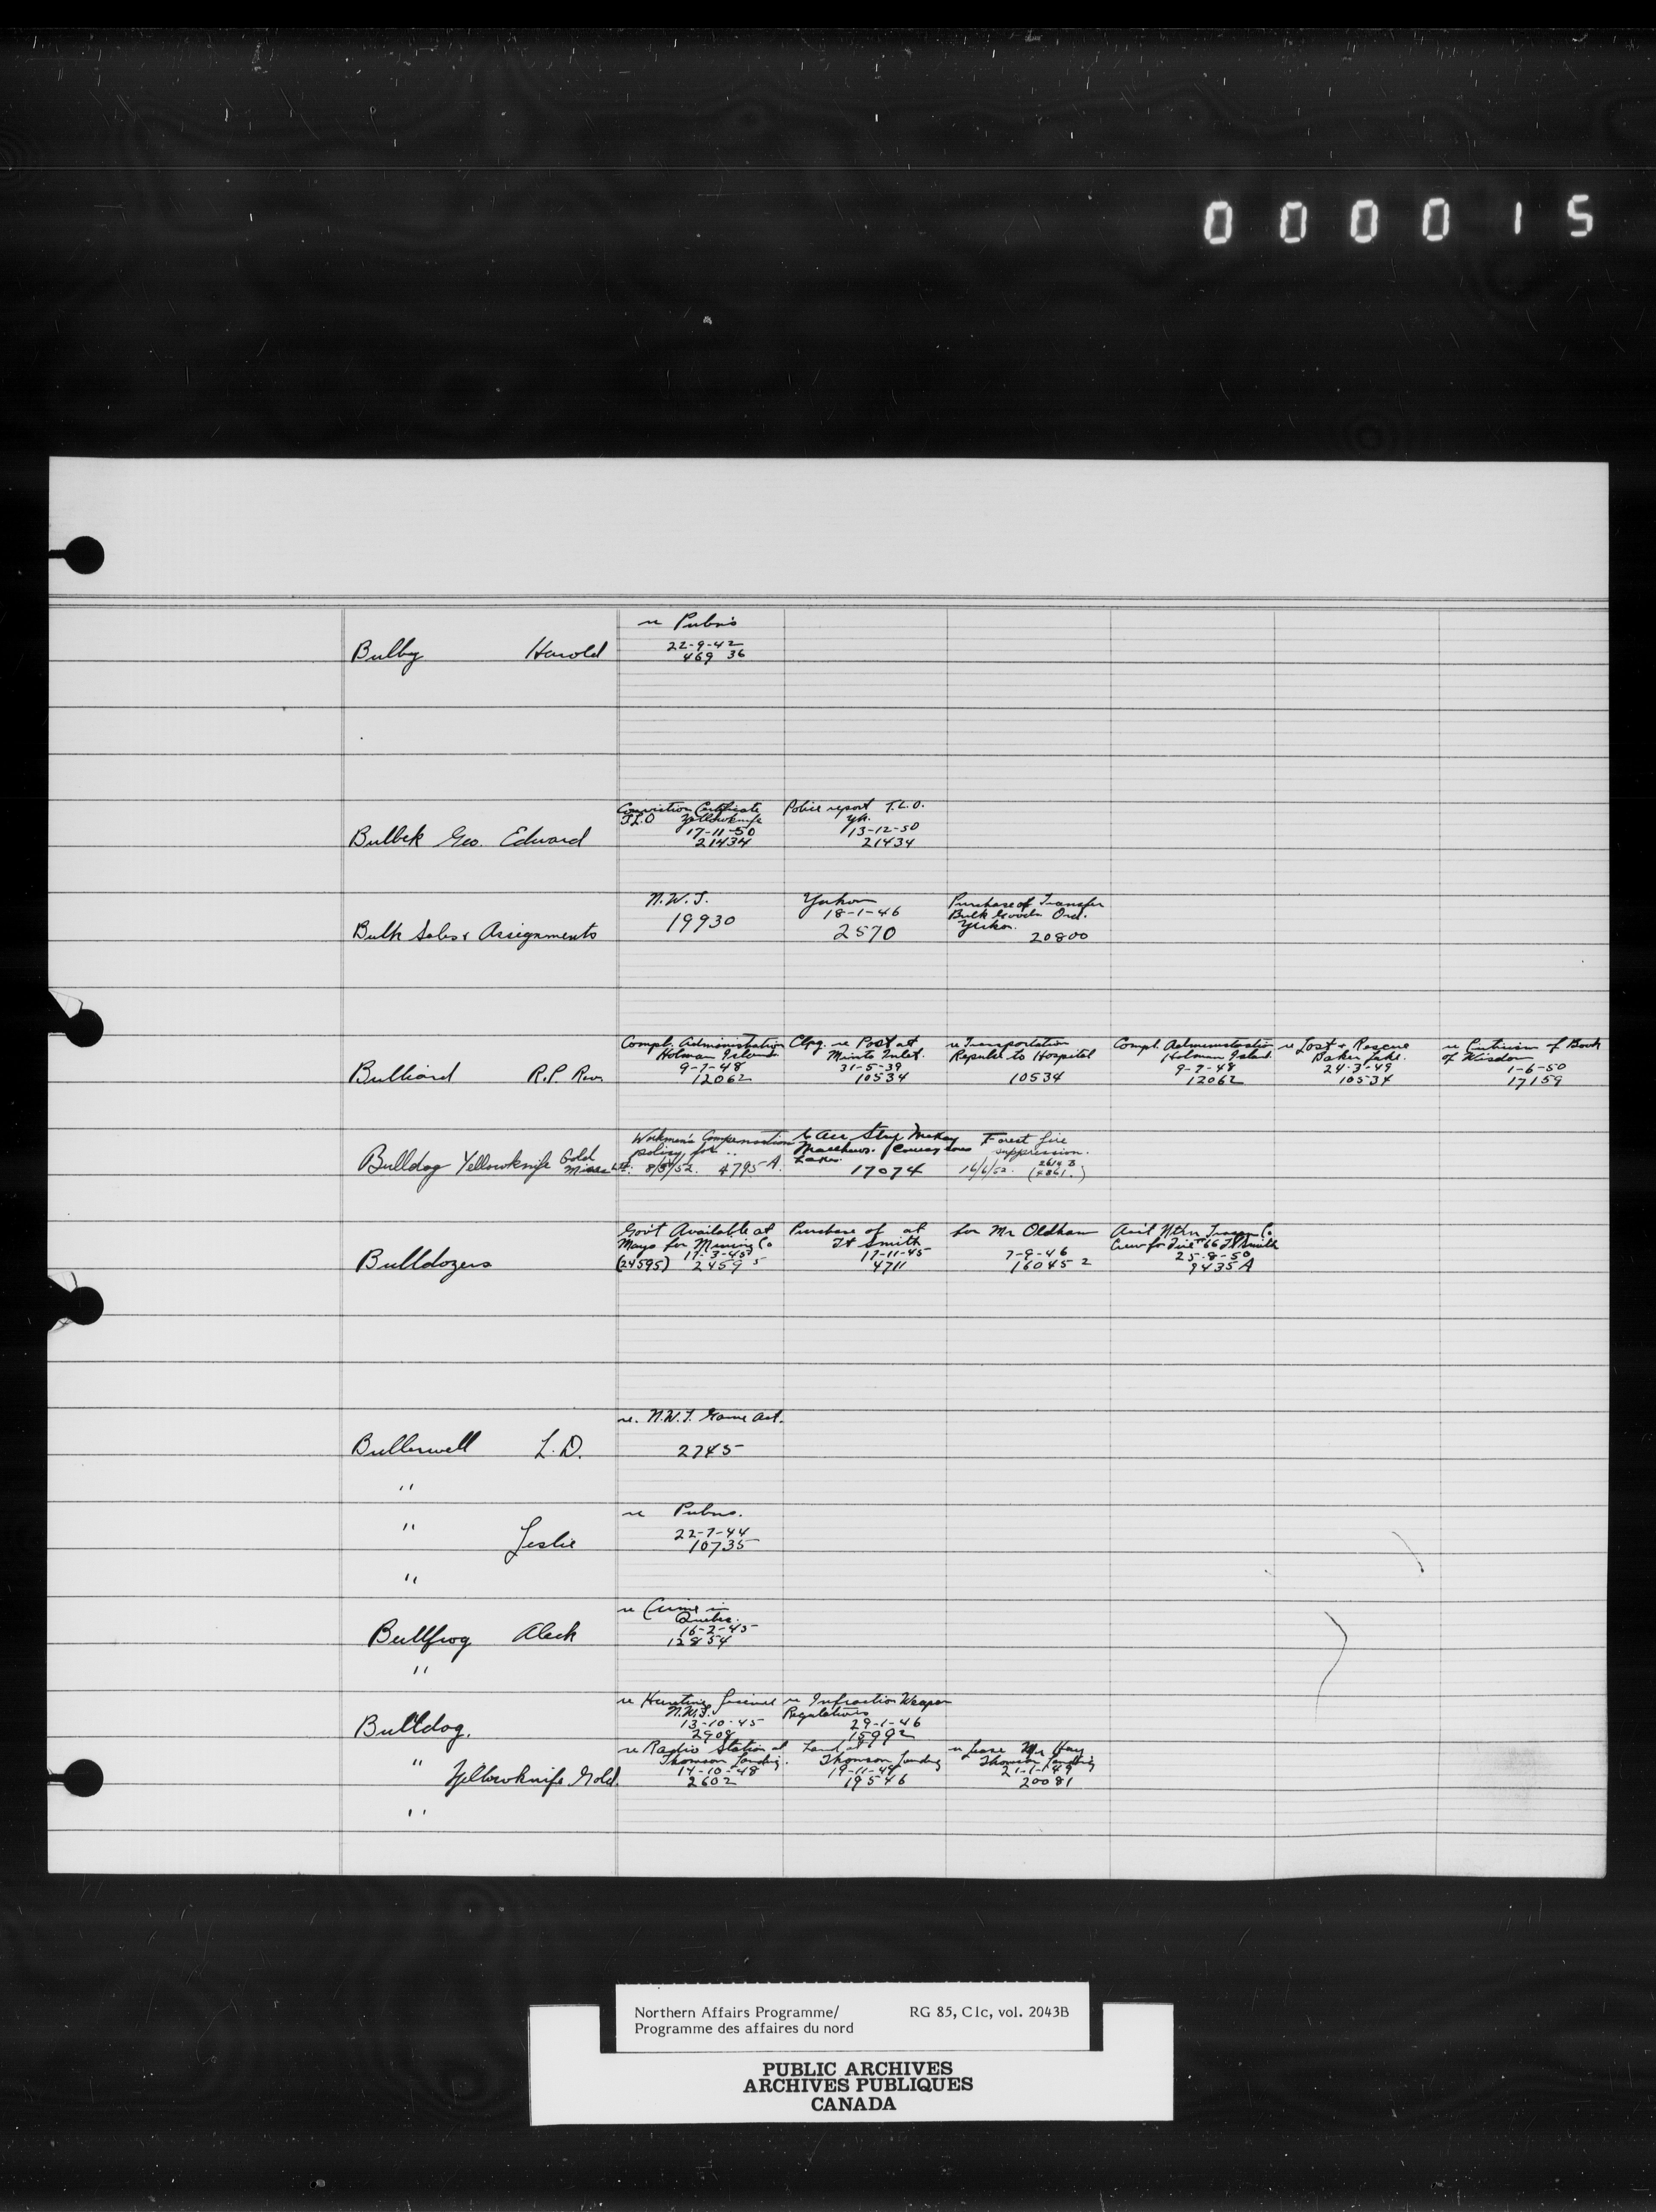 000015
re Pubn's
Bulby Harold 22-9-42
469 36
Conviction Certificate Police report T.L.O.
T.L.O Yellowknife Yk.
17-11-50 13-12-50
Bulbek Geo. Edward 21434 21434
N.W.T. Yukon Purchase of Transfer
19930 18-1-46 Bulk Goods Ord.
Bulk Sales & Assignments 2570 Yukon.
20800
Compl. Administration Clpg. re Post at re Transportation Compl. Administration re Lost & Rescue re Criticism of Book
Holman Island Minto Inlet. Repulse to Hospital Holman Island Baker Lake. of Wisdom
9-7-48 31-5-39 9-7-48 24-3-49 1-6-50
Bulliard R.P. Rev. 12062 10534 10534 12062 10534 17159
Workmen's Compensation to Air Strip McKay Forest fire
policy for .. Matthews. Lakes suppression.
Bulldog Yellowknife Gold Mines Ltd. 8/5/52. 4795 A. 17074 16/6/52.
Gov't Available at Purchase of at for Mr Oldham Ass't Nthn Transp. Co.
Mayo for Mining Co Ft Smith Crew for Fire 66 Ft Smith
17-3-45 17-11-45 7-9-46 25-8-50
Bulldozers (24595) 24595 4711 16045 2 9435 A
re. N.W.T. Game Act.
Bullerwell L.D. 2745
"
re Pubns.
" Leslie 22-7-44
10735
"
re Crime in
Quebec.
Bullfrog Aleck 16-2-45
12854
"
re Hunting License re Infraction Weapon
N.W.T. Regulations
Bulldog. 13-10-45 29-1-46
2908 15992
re Radio Station at Land at re Lease Mr Hay
" Thomson Landing. Thomson Landing Thomson Landing
14-10-48 19-11-48 21-1-49
Yellowknife Gold. 2602 19546 20081
"
Northern Affairs Programme/ RG 85, C1c, vol. 2043B
Programme des affaires du nord
PUBLIC ARCHIVES
ARCHIVES PUBLIQUES
CANADA